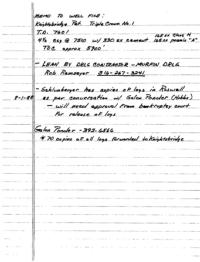 MEMO TO WELL FILE:
Knightsbridge Pet. Triple Crown No. 1
T.D. 7801'
4½ csg @ 7800 w/ 330 sx cement
TOC approx 5900'
- LEAN BY DRLG CONTRACTOR - MURFIN DRLG
Rob Ramseyer 316-267-3241
- Schlumberger has copies of logs in Roswell
8-1-88 as per conversation w/ Galen Ponder (Hobbs)
- will need approval from bankruptcy court
for release of logs
Galen Ponder - 393-6866
# 70 copies of all logs forwarded to Knightsbridge